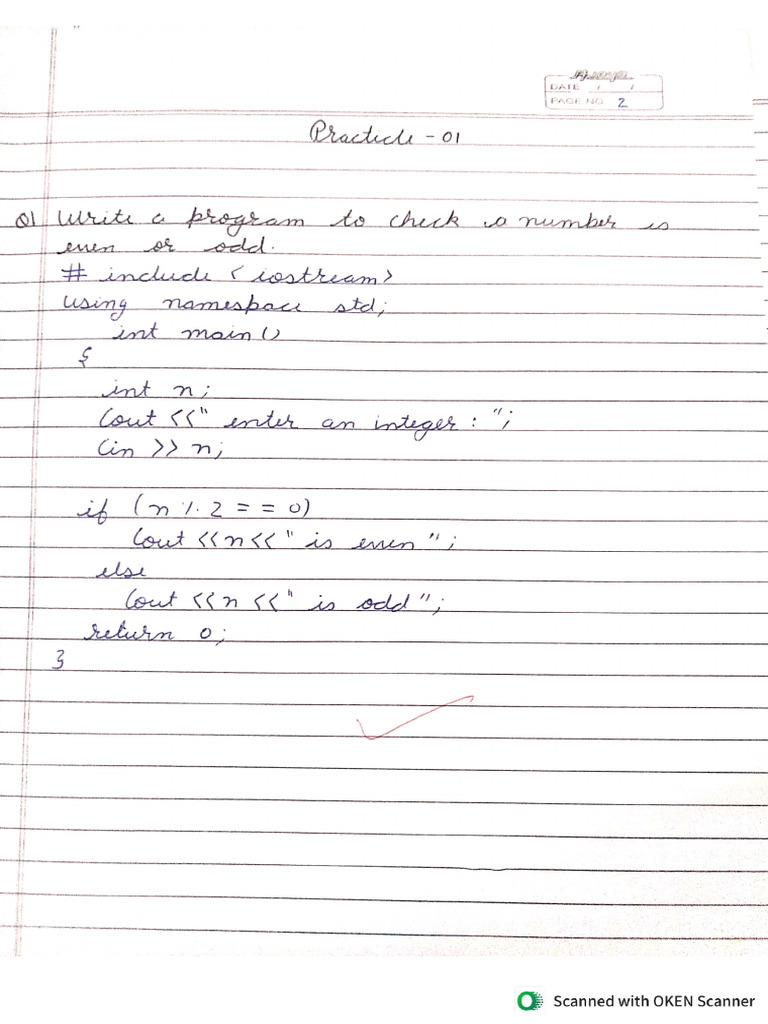 DATE / /
PAGE NO. 2
Practicle - 01
Q1 Write a program to check a number is
even or odd.
# include < iostream>
using namespace std;
int main ()
{
int n;
Cout <<" enter an integer : ";
Cin >> n;
if (n % 2 = = 0)
Cout <<n<<" is even ";
else
Cout <<n <<" is odd";
return 0;
}
Scanned with OKEN Scanner